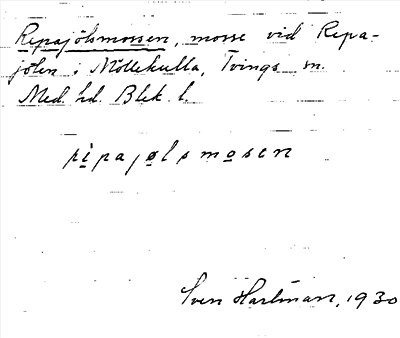 Repajölsmossen, mosse vid Repa-
jölen i Möllekulla, Tvings sn.
Med. hd. Blek. l.
ripajølsmosen
Sven Hartman, 1930